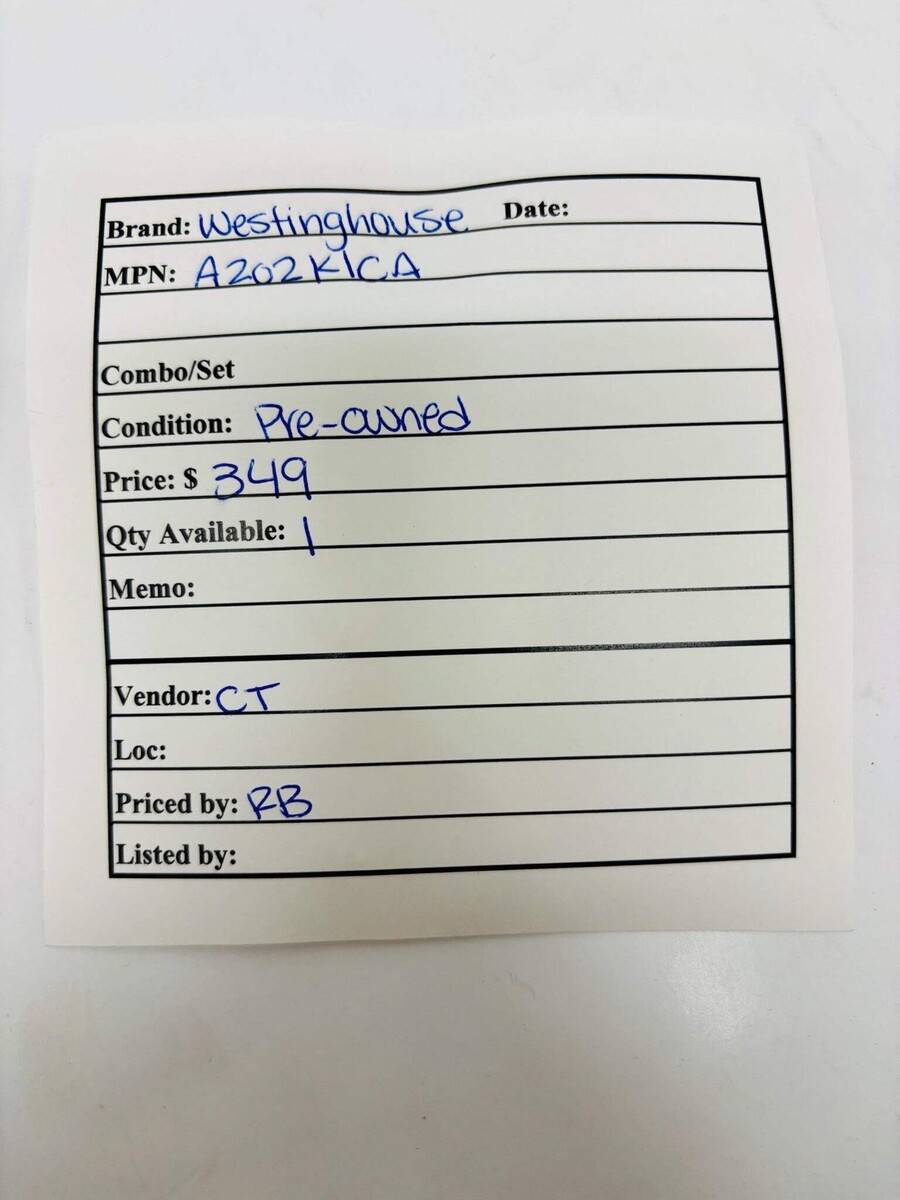 Brand: Westinghouse Date:
MPN: A202K1CA
Combo/Set
Condition: Pre-owned
Price: $ 349
Qty Available: 1
Memo:
Vendor: CT
Loc:
Priced by: RB
Listed by: